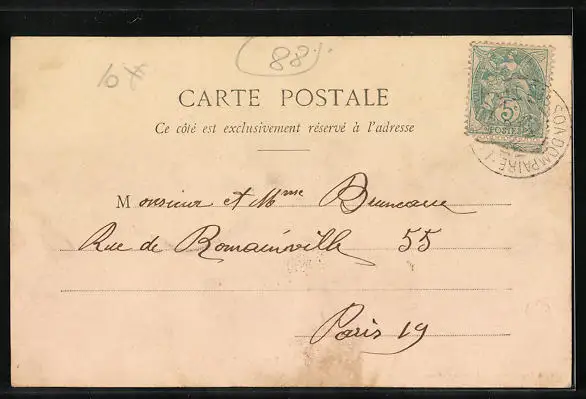 10
88
CARTE POSTALE
Ce côté est exclusivement réservé à l'adresse
5c
POSTES
DOMPAIRE
Monsieur et Mme Bruneau
Rue de Romainville 55
Paris 19